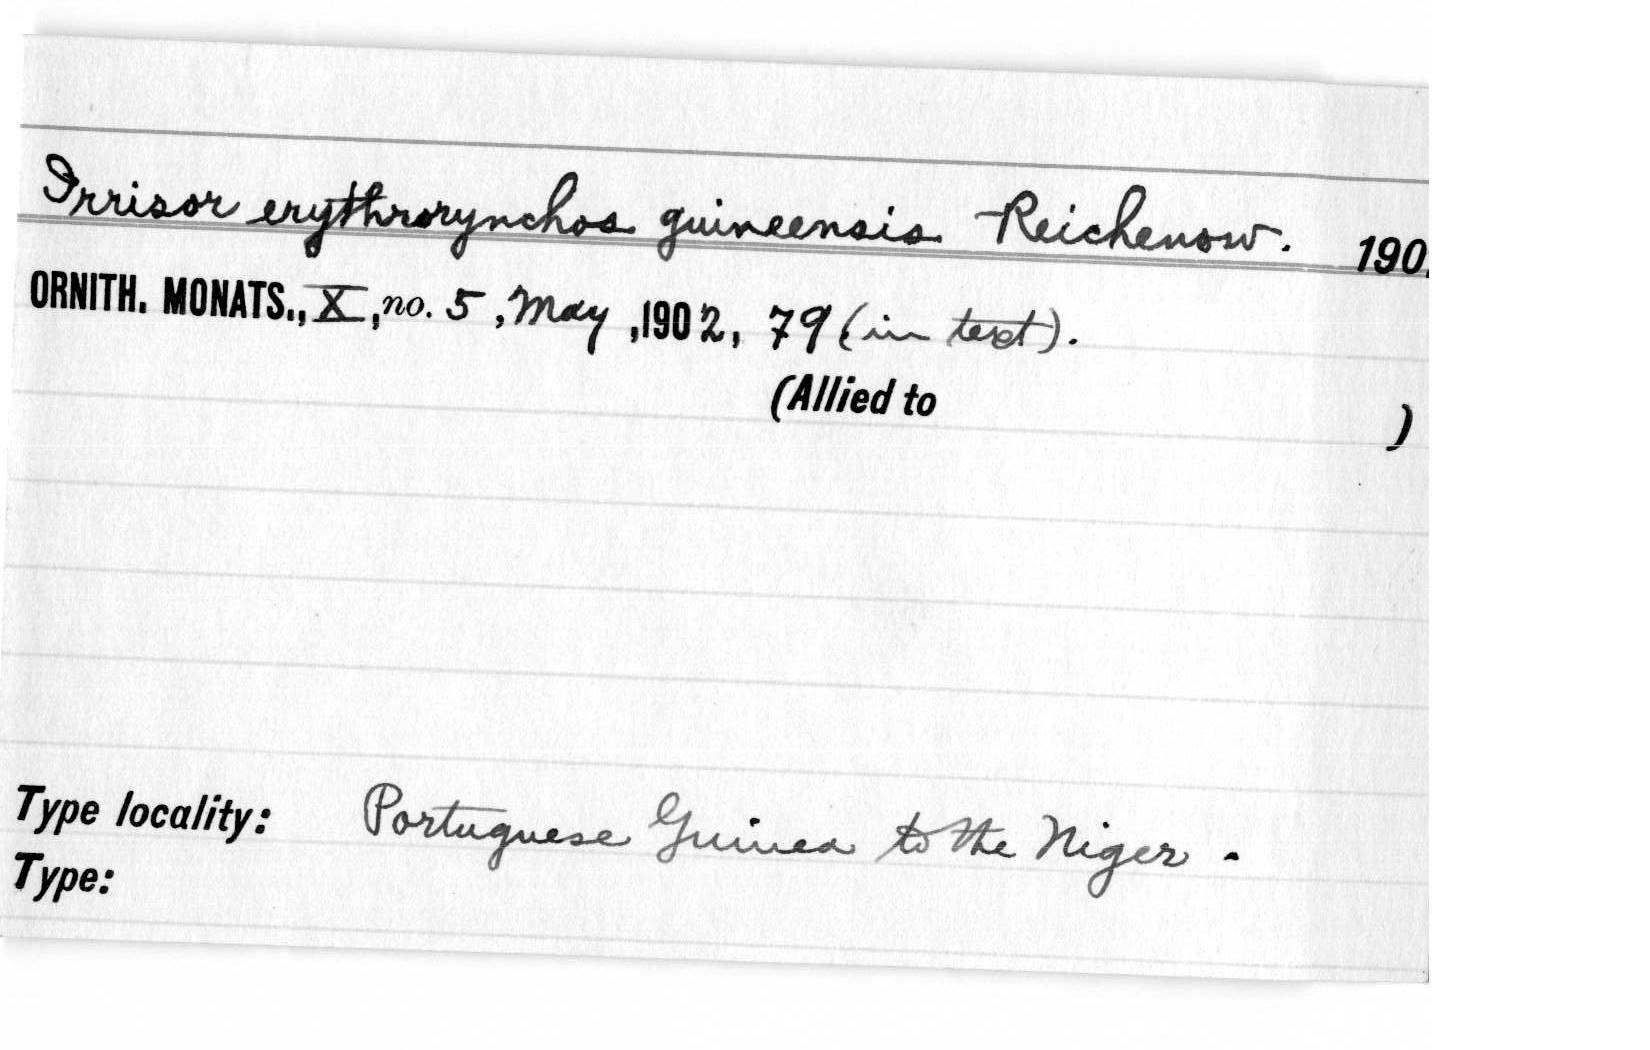 Irrisor erythrorynchos guineensis Reichenow. 190
ORNITH. MONATS., X, no. 5, May, 1902, 79 (in text).
(Allied to )
Type locality: Portuguese Guinea to the Niger.
Type: